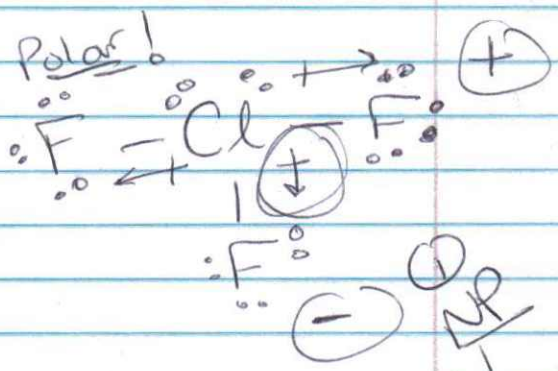 Polar!
+
F - Cl - F
F
-
NP